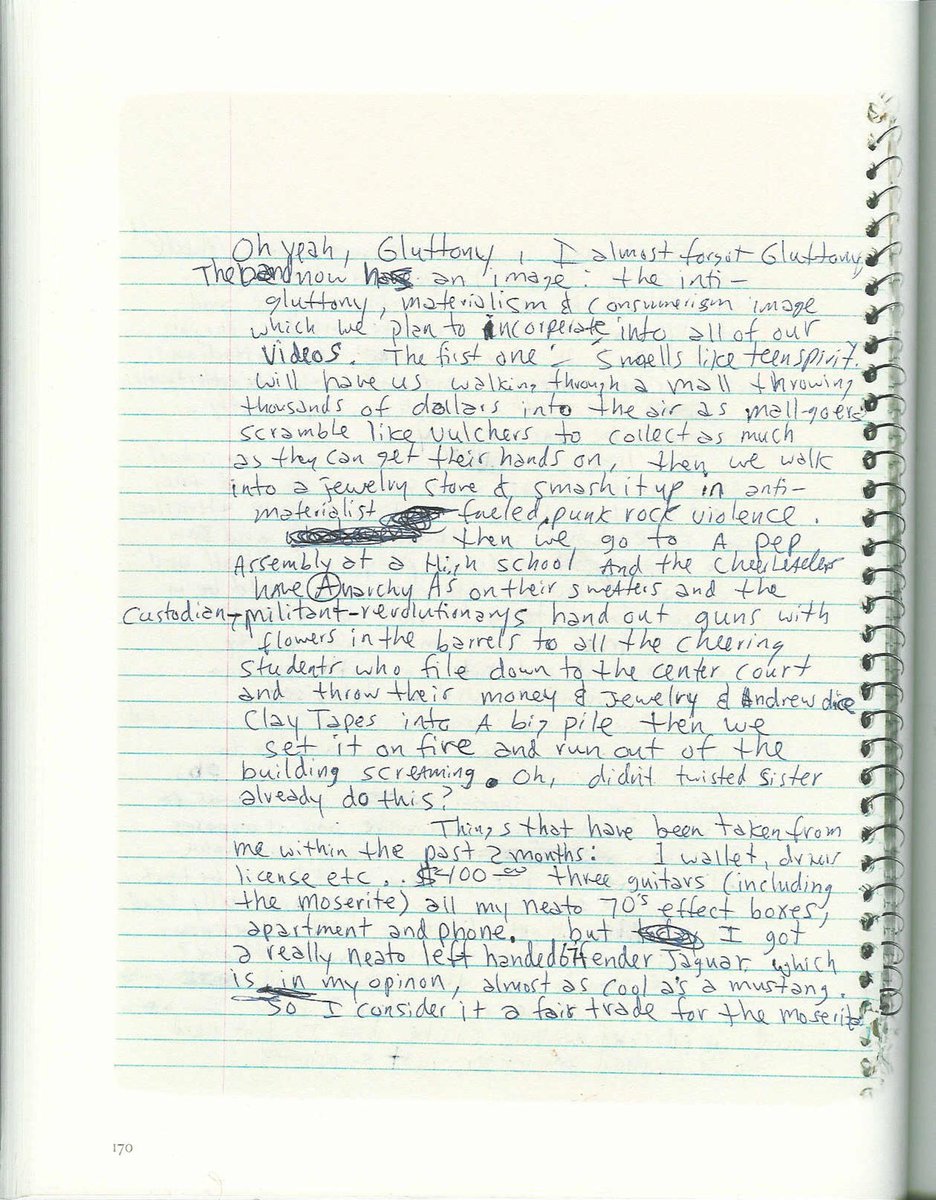 Oh yeah, Gluttony, I almost forgot Gluttony
The band now has an image: the inti-
gluttony, materialism & consumerism image
which we plan to incorperate into all of our
videos. The first one: Smells like teen spirit.
will have us walking through a mall throwing
thousands of dollars into the air as mall-goers
scramble like vulchers to collect as much
as they can get their hands on, then we walk
into a jewelry store & smash it up in anti-
materialist fueled punk rock violence.
then we go to A pep
Assembly at a High school And the cheerleaders
have Anarchy As on their sweaters and the
Custodian-militant-revolutionarys hand out guns with
flowers in the barrels to all the cheering
students who file down to the center court
and throw their money & jewelry & Andrew dice
Clay Tapes into A big pile then we
set it on fire and run out of the
building screaming. Oh, didn't twisted sister
already do this?
Things that have been taken from
me within the past 2 months: 1 wallet, drivers
license etc.. $400.00 three guitars (including
the moserite) all my neato 70's effect boxes,
apartment and phone. but I got
a really neato left handed 67 fender Jaguar. which
is in my opinon, almost as cool as a mustang.
So I consider it a fair trade for the moserite
170